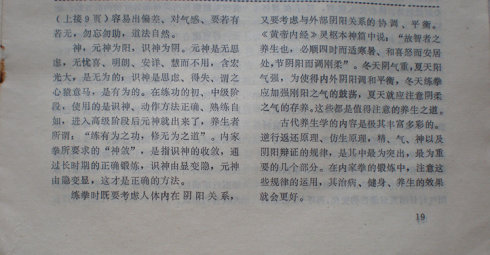 (上接9页)容易出偏差、对气感、要若有
若无,勿忘勿助,道法自然。
神,元神为阳,识神为阴。元神是无思
虑,无忧喜、明朗、安详、慧而不用,含宏
光大,是无为的;识神是思虑、得失、谓之
心猿意马,是有为的。在练功的初、中级阶
段,使用的是识神、动作方法正确、熟练自
如,进入高级阶段后元神就出来了,养生者
所谓:“练有为之功,修无为之道”。内家
拳所要求的“神敛”,是指识神的收敛,通
过长时期的正确锻炼,识神由显变隐,元神
由隐变显,这才是正确的方法。
练拳时既要考虑人体内在阴阳关系,
又要考虑与外部阴阳关系的协调、平衡。
《黄帝内经》灵枢本神篇中说:“故智者之
养生也,必顺四时而适寒暑、和喜怒而安居
处,节阴阳而调刚柔”。冬天阴气重,夏天阳
气强,为使得内外阴阳调和平衡,冬天练拳
应加强刚阳之气的鼓荡,夏天就应注意阴柔
之气的存养。这些都是值得注意的养生之道。
古代养生学的内容是极其丰富多彩的。
逆行返还原理、仿生原理,精、气、神以及
阴阳辩证的规律,是其中最为突出,最为重
要的几个部分。在内家拳的锻炼中,注意这
些规律的运用,其治病、健身、养生的效果
就会更好。
19